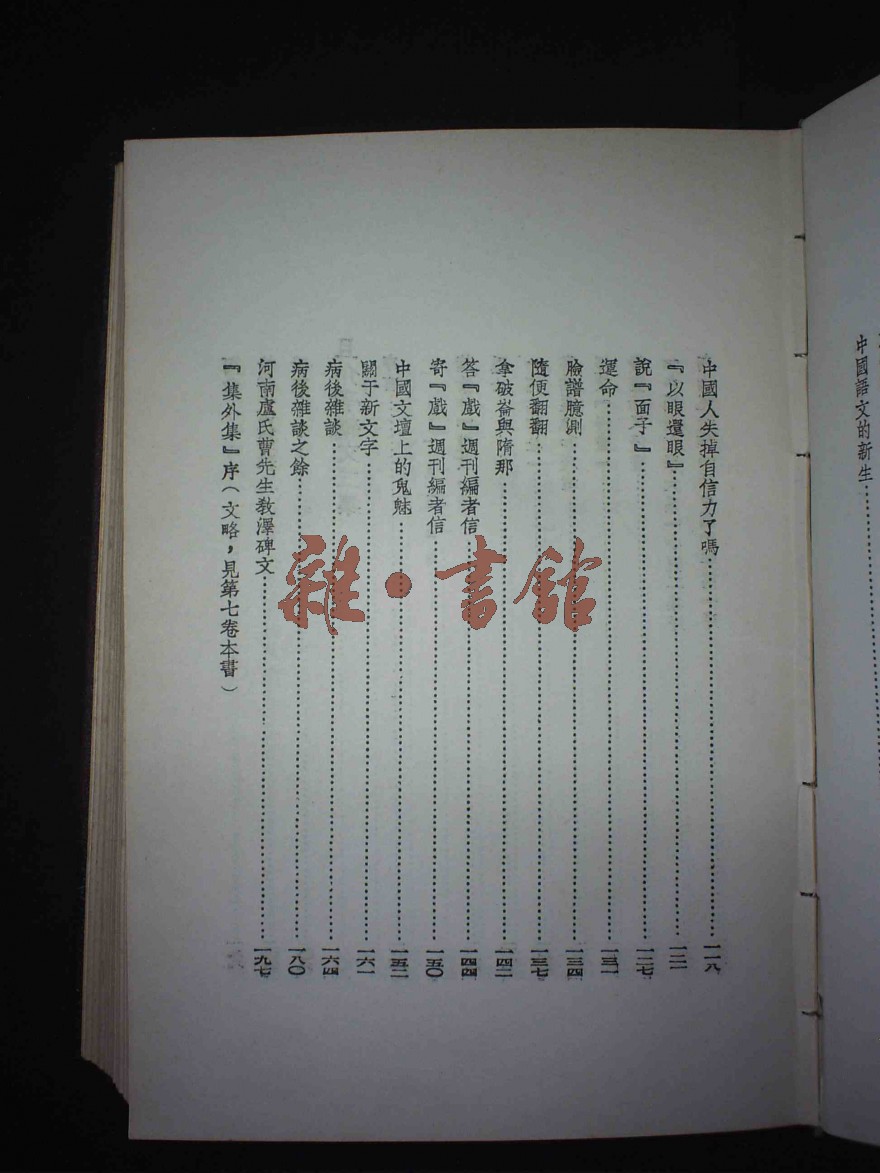 中國語文的新生
中國人失掉自信力了嗎……一一八
『以眼還眼』……一二一
說『面子』……一二七
運命……一三一
臉譜臆測……一三四
隨便翻翻……一三七
拿破崙與隋那……一四二
答『戲』週刊編者信……一四四
寄『戲』週刊編者信……一五〇
中國文壇上的鬼魅……一五二
關于新文字……一六一
病後雜談……一六四
病後雜談之餘……一八〇
河南盧氏曹先生教澤碑文……一九七
『集外集』序（文略，見第七卷本書）
雜·書館